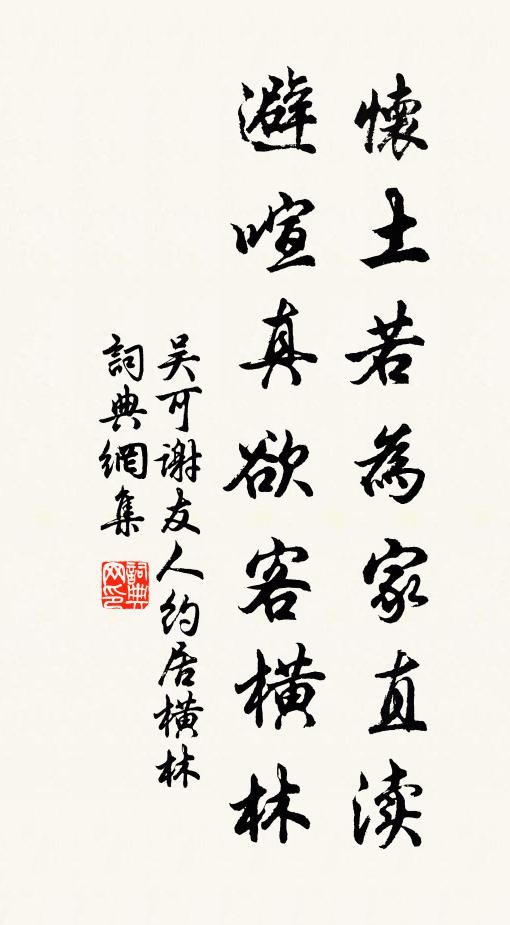 懷土若為家直渎
避喧真欲客橫林
吴可谢友人约居橫林
詞典網集
詞典网印